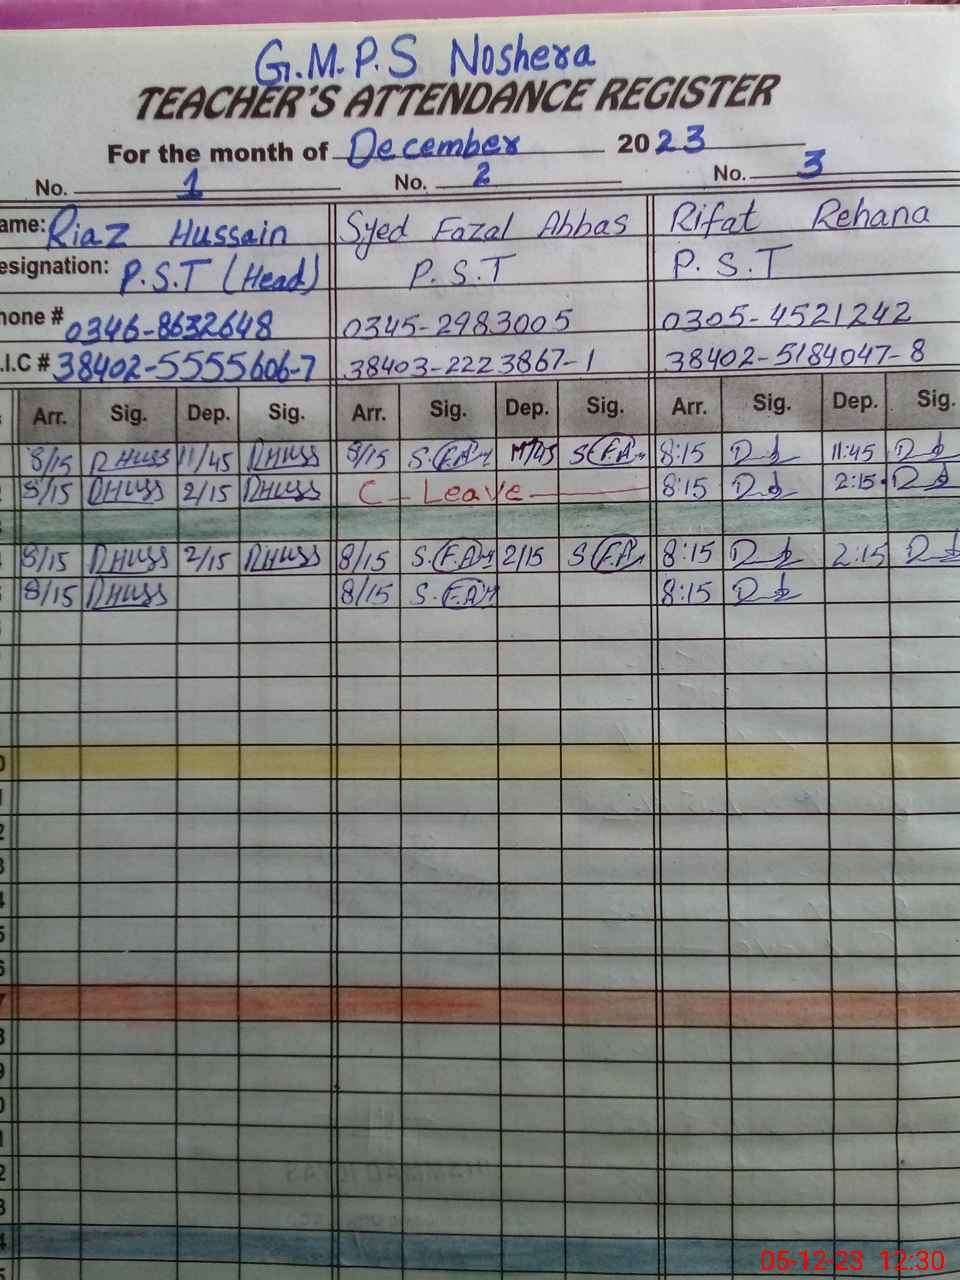 G.M.P.S Noshera
TEACHER'S ATTENDANCE REGISTER
For the month of December 2023
No. 1 No. 2 No. 3
ame: Riaz Hussain Syed Fazal Abbas Rifat Rehana
esignation: P.S.T (Head) P.S.T P.S.T
hone # 0346-8632648 0345-2983005 0305-4521242
.I.C # 38402-5555606-7 38403-2223867-1 38402-5184047-8
Arr. Sig. Dep. Sig. Arr. Sig. Dep. Sig. Arr. Sig. Dep. Sig.
8/15 RHUSS 11/45 RHUSS 8/15 S.F.A 11/45 S.F.A 8:15 11:45
8/15 RHUSS 2/15 RHUSS C - Leave 8:15 2:15
8/15 RHUSS 2/15 RHUSS 8/15 S.F.A 2/15 S.F.A 8:15 2:15
8/15 RHUSS 8/15 S.F.A 8:15
0
1
2
3
4
5
6
7
8
9
0
1
2
3
4
5
05-12-23 12:30